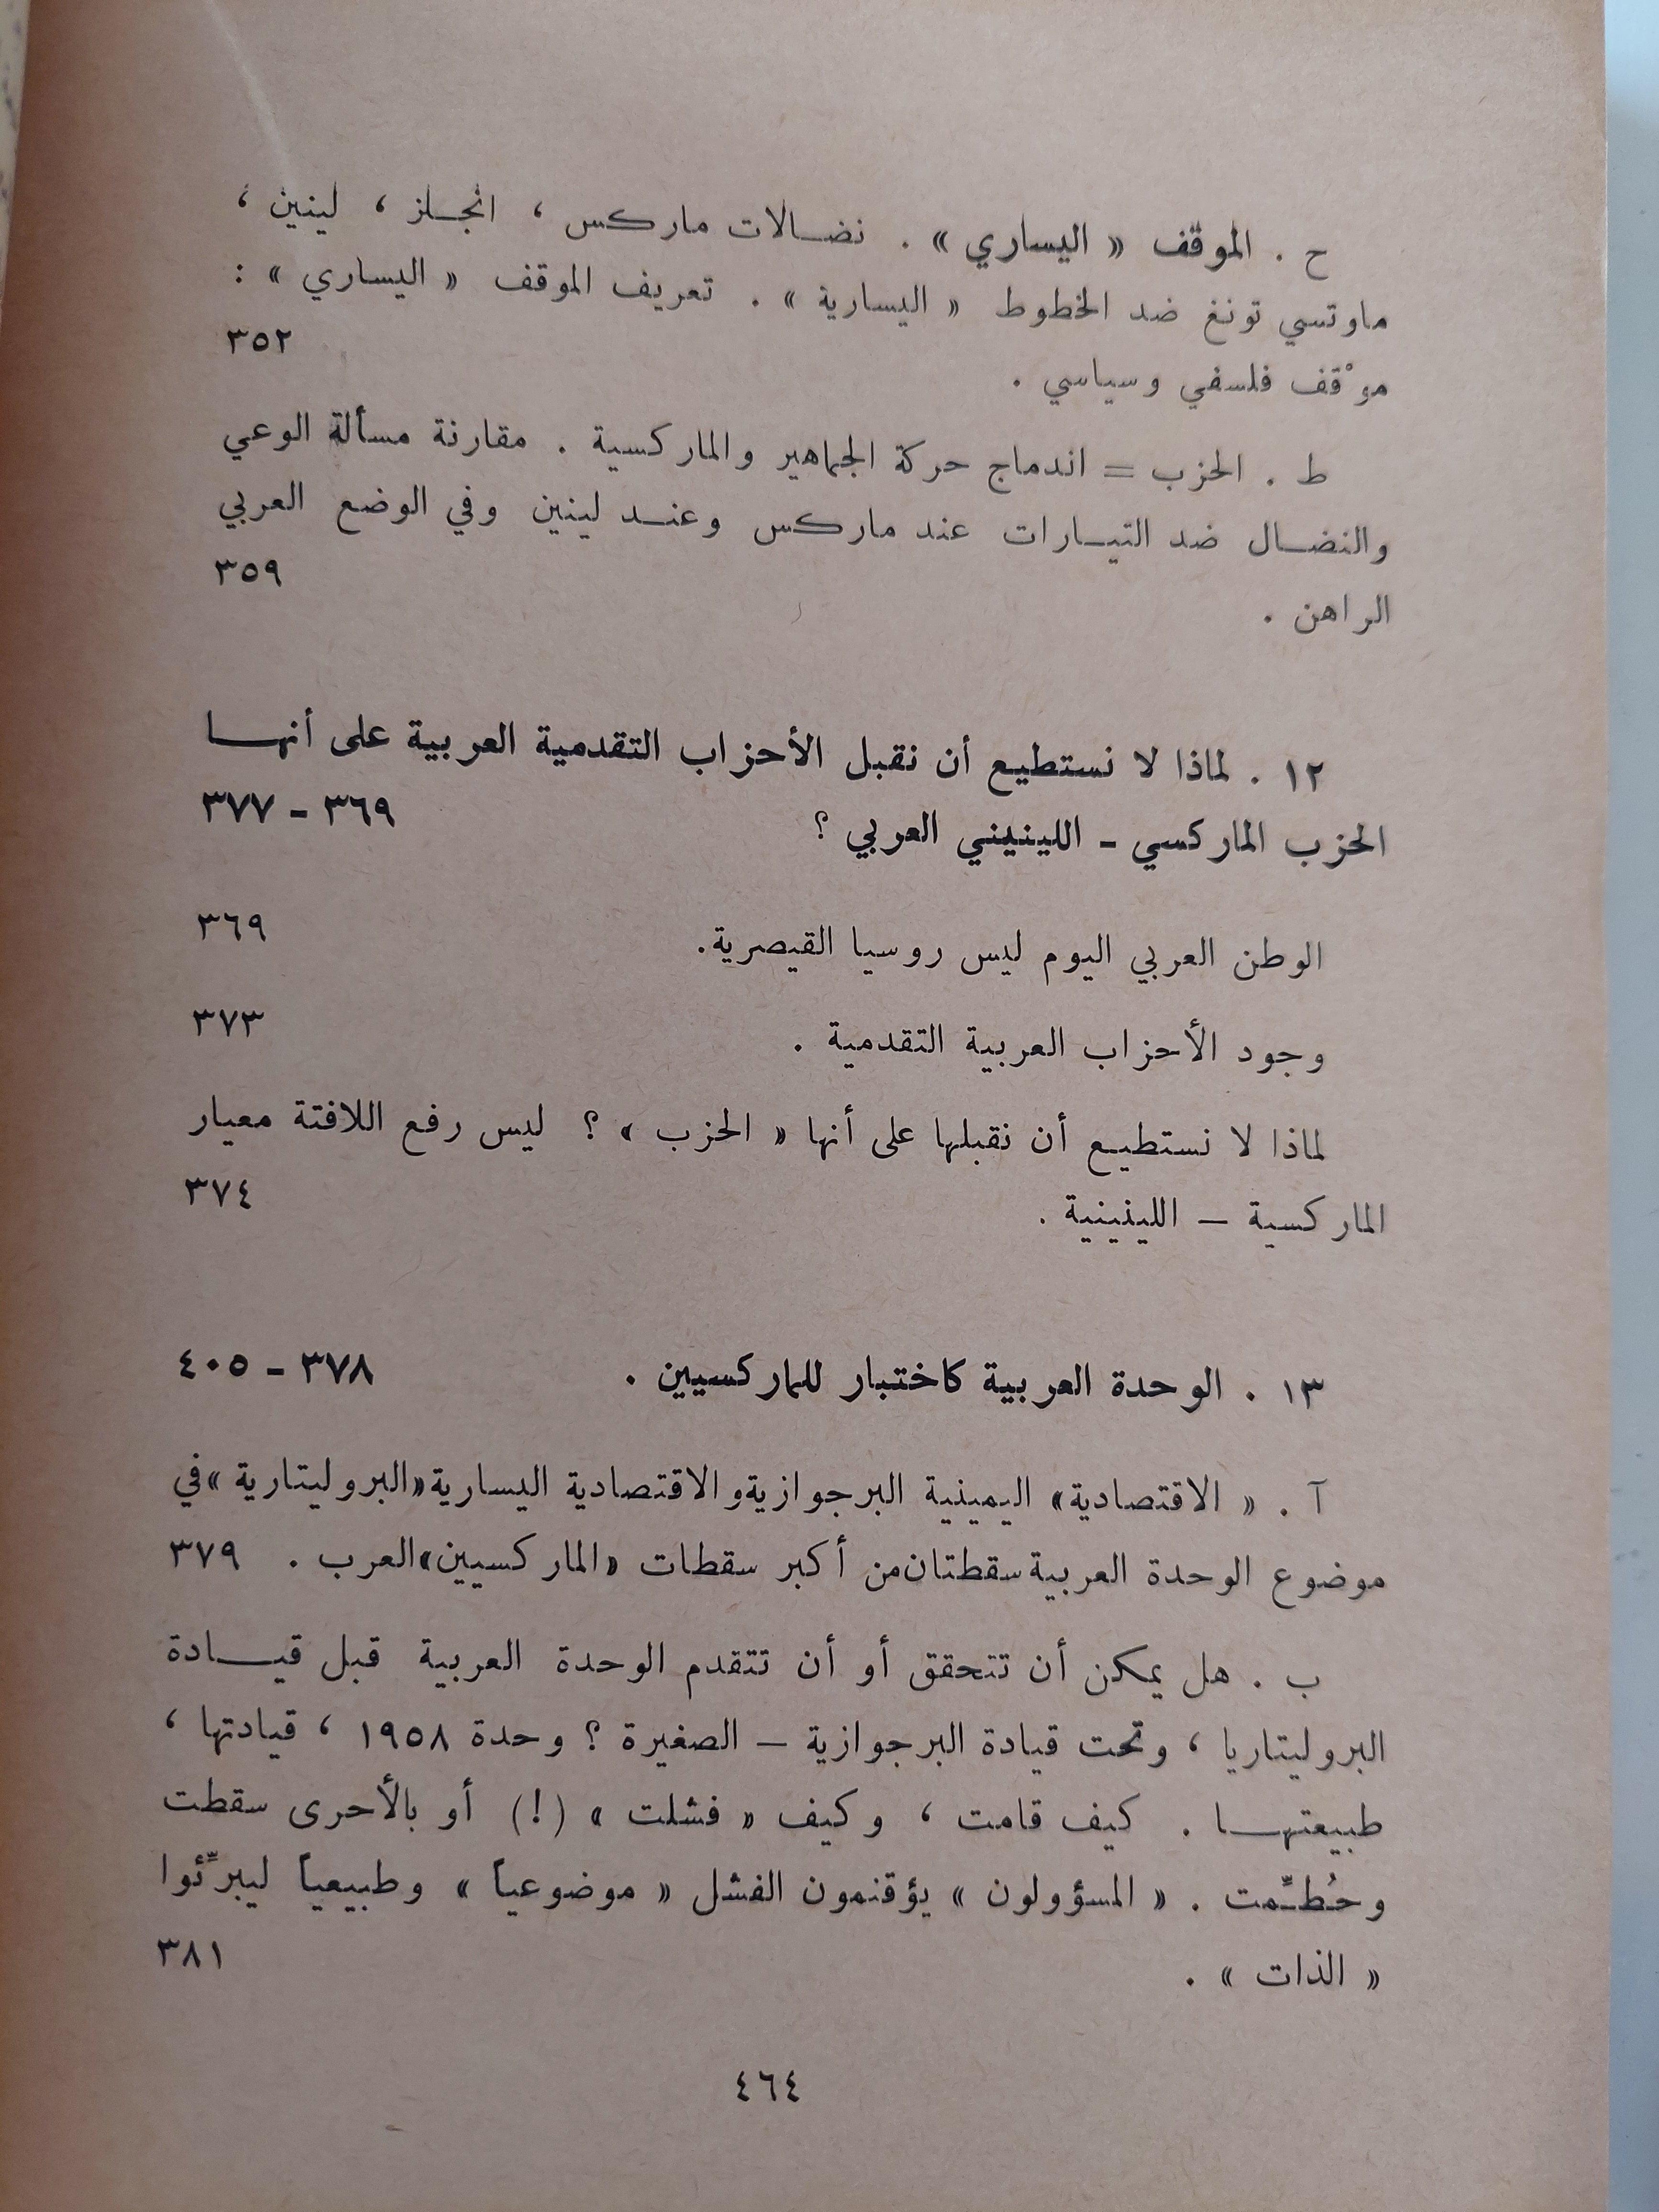 ح . الموقف « اليساري » . نضالات ماركس ، انجلز ، لينين ،
ماوتسي تونغ ضد الخطوط « اليسارية » . تعريف الموقف « اليساري » :
موْقف فلسفي وسياسي . ٣٥٢
ط . الحزب = اندماج حركة الجماهير والماركسية . مقارنة مسألة الوعي
والنضال ضد التيارات عند ماركس وعند لينين وفي الوضع العربي
الراهن . ٣٥٩
١٢ . لماذا لا نستطيع أن نقبل الأحزاب التقدمية العربية على أنها
الحزب الماركسي - اللينيني العربي ؟ ٣٦٩ - ٣٧٧
الوطن العربي اليوم ليس روسيا القيصرية. ٣٦٩
وجود الأحزاب العربية التقدمية . ٣٧٣
لماذا لا نستطيع أن نقبلها على أنها « الحزب » ؟ ليس رفع اللافتة معيار
الماركسية – اللينينية . ٣٧٤
١٣ . الوحدة العربية كاختبار للماركسيين . ٣٧٨ - ٤٠٥
آ . « الاقتصادية» اليمينية البرجوازية والاقتصادية اليسارية «البروليتارية » في
موضوع الوحدة العربية سقطتان من أكبر سقطات «الماركسيين» العرب . ٣٧٩
ب . هل يمكن أن تتحقق أو أن تتقدم الوحدة العربية قبل قيادة
البروليتاريا ، وتحت قيادة البرجوازية – الصغيرة ؟ وحدة ١٩٥٨ ، قيادتها ،
طبيعتها . كيف قامت ، وكيف « فشلت » (!) أو بالأحرى سقطت
وحُطِّمت . « المسؤولون » يؤقنمون الفشل « موضوعياً » وطبيعياً ليبرِّئوا
« الذات » . ٣٨١
٤٦٤